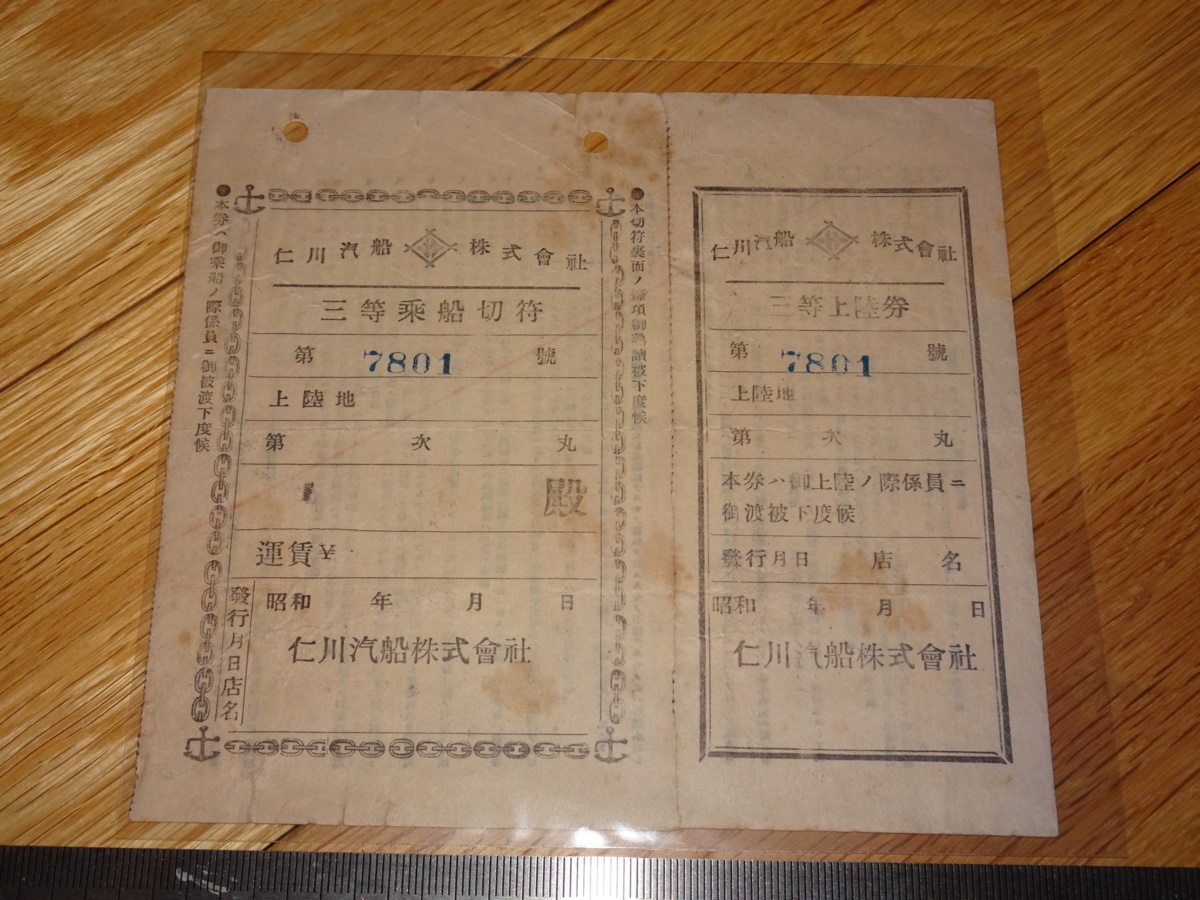 ●本切符裏面ノ事項御熟讀被下度候
仁川汽船株式會社
三等乘船切符
第 7801 號
上陸地
第 次 丸
殿
運賃¥
發行月日店名
昭和 年 月 日
仁川汽船株式會社
●本券ハ御乘船ノ際係員ニ御被渡下度候
仁川汽船株式會社
三等上陸券
第 7801 號
上陸地
第 次 丸
本券ハ御上陸ノ際係員ニ
御渡被下度候
發行月日 店名
昭和 年 月 日
仁川汽船株式會社